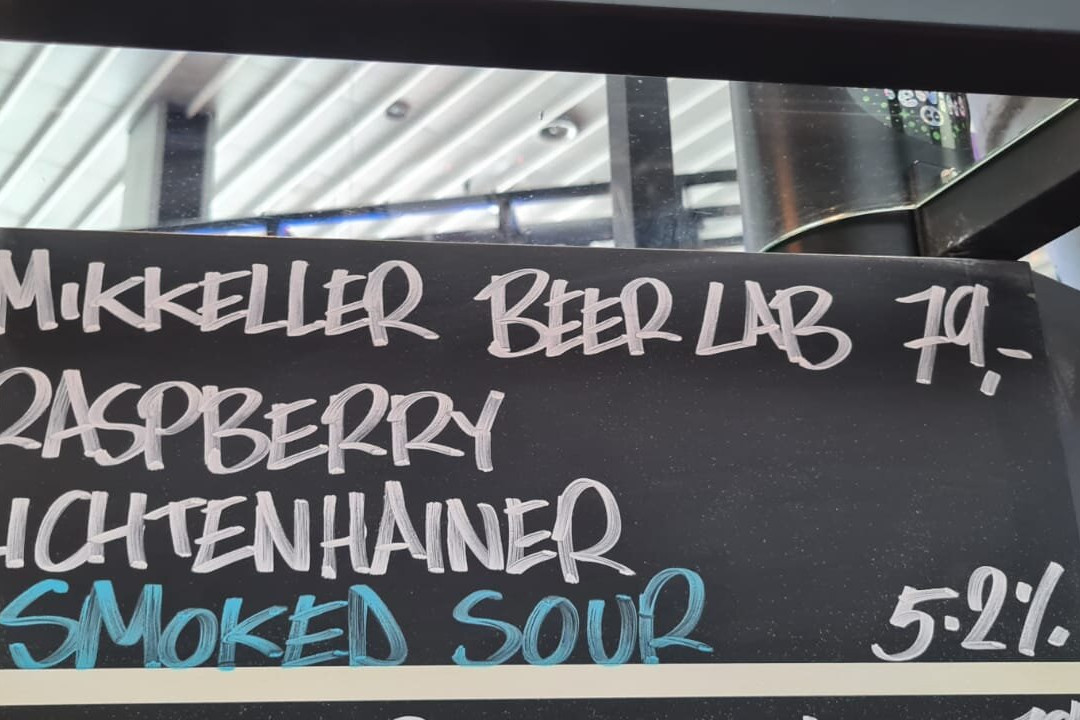 MIKKELLER BEER LAB 79,-
RASPBERRY
LICHTENHAINER
SMOKED SOUR 5.2%